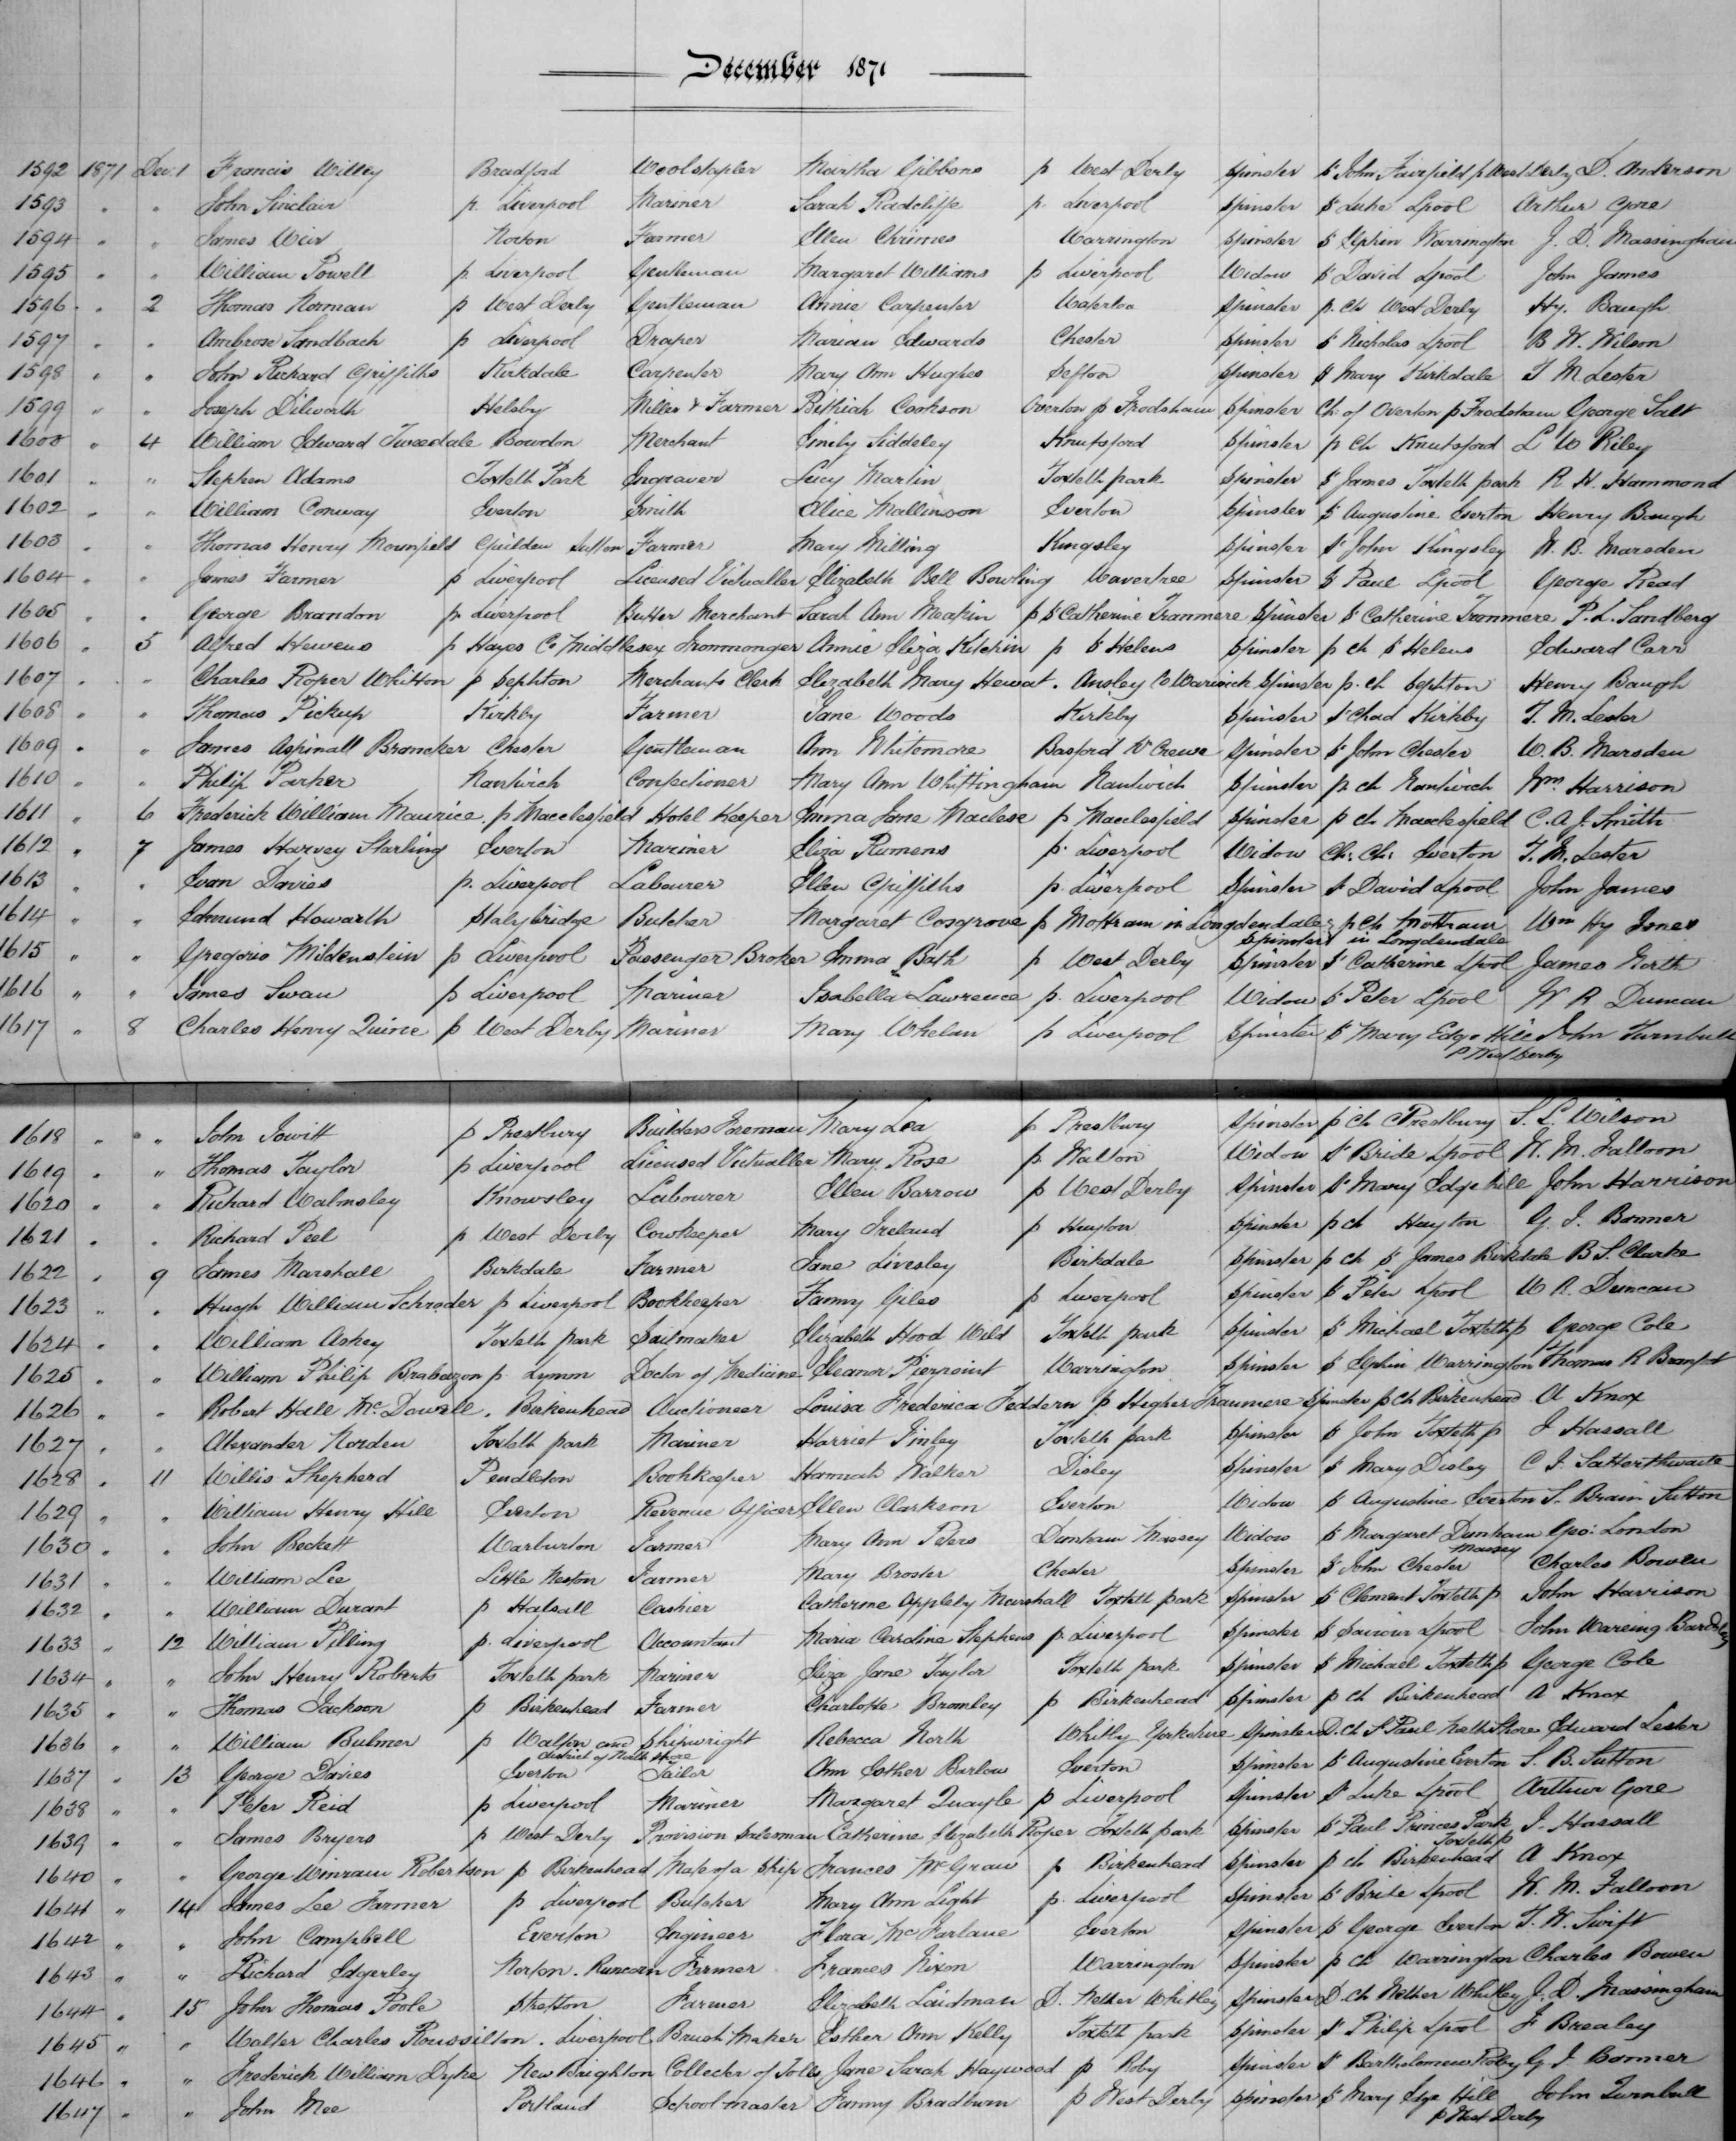 December 1871
1592 1871 Dec. 1 Francis Willey Bradford Woolstapler Martha Gibbons p West Derby Spinster St John Fairfield p West Derby D. Anderson
1593 " " John Sinclair p. Liverpool Mariner Sarah Radcliffe p. Liverpool Spinster St Luke Lpool Arthur Gore
1594 " " James Weir Norton Farmer Ellen Chrimes Warrington Spinster St Elphin Warrington J. D. Massingham
1595 " " William Powell p. Liverpool Gentleman Margaret Williams p Liverpool Widow St David Lpool John James
1596 " 2 Thomas Norman p West Derby Gentleman Annie Carpenter Waterloo Spinster p. ch West Derby Hy. Baugh
1597 " " Ambrose Sandbach p Liverpool Draper Marian Edwards Chester Spinster St Nicholas Lpool B W. Wilson
1598 " " John Richard Griffiths Kirkdale Carpenter Mary Ann Hughes Sefton Spinster St Mary Kirkdale T M Lester
1599 " " Joseph Dilworth Helsby Miller & Farmer Bithiah Cookson Overton p Frodsham Spinster Ch: of Overton p Frodsham George Salt
1600 " 4 William Edward Tweedale Bowdon Merchant Emily Siddeley Knutsford Spinster p ch Knutsford L W Riley
1601 " " Stephen Adams Toxteth Park Engraver Lucy Martin Toxteth park Spinster St James Toxteth park R H. Hammond
1602 " " William Conway Everton Smith Alice Mallinson Everton Spinster St Augustine Everton Henry Baugh
1603 " " Thomas Henry Mounfield Guilden Sutton Farmer Mary Milling Kingsley Spinster St John Kingsley W. B. Marsden
1604 " " James Farmer p Liverpool Licensed Victualler Elizabeth Bell Bowling Wavertree Spinster St Paul Lpool George Read
1605 " " George Brandon p. Liverpool Butter Merchant Sarah Ann Meakin p St Catherine Tranmere Spinster St Catherine Tranmere P. L. Sandberg
1606 " 5 Alfred Hewens p Hayes Co Middlesex Ironmonger Annie Eliza Kitchin p St Helens Spinster p ch St Helens Edward Carr
1607 " " Charles Roper Whitton p Sephton Merchants Clerk Elizabeth Mary Hewat. Ansley Co Warwick Spinster p. ch Sephton Henry Baugh
1608 " " Thomas Pickup Kirkby Farmer Jane Woods Kirkby Spinster St Chad Kirkby T. M. Lester
1609 " " James Aspinall Brancker Chester Gentleman Ann Whitemore Basford Nr Crewe Spinster St John Chester W. B. Marsden
1610 " " Philip Parker Nantwich Confectioner Mary Ann Whittingham Nantwich Spinster p ch Nantwich Wm Harrison
1611 " 6 Frederick William Maurice p Macclesfield Hotel Keeper Emma Jane Maclese p Macclesfield Spinster p ch Macclesfield C. A. J. Smith
1612 " 7 James Harvey Starling Everton Mariner Eliza Rumens p. Liverpool Widow Ch: Ch: Everton T. M. Lester
1613 " " Evan Davies p. Liverpool Labourer Ellen Griffiths p. Liverpool Spinster St David Lpool John James
1614 " " Edmund Howarth Stalybridge Butcher Margaret Cosgrove p Mottram in Longdendale Spinster p ch Mottram in Longdendale Wm Hy Jones
1615 " " Gregorio Mildenstein p Liverpool Passenger Broker Emma Bath p West Derby Spinster St Catherine Lpool James North
1616 " " James Swan p Liverpool Mariner Isabella Lawrence p. Liverpool Widow St Peter Lpool W R Duncan
1617 " 8 Charles Henry Quince p West Derby Mariner Mary Whelan p Liverpool Spinster St Mary Edge Hill p West Derby John Turnbull
1618 " " John Jowitt p Prestbury Builders Foreman Mary Lea p Prestbury Spinster p ch Prestbury S. L. Wilson
1619 " " Thomas Taylor p Liverpool Licensed Victualler Mary Rose p. Walton Widow St Bride Lpool W. M. Falloon
1620 " " Richard Walmsley Knowsley Labourer Ellen Barrow p West Derby Spinster St Mary Edge hill John Harrison
1621 " " Richard Peel p West Derby Cowkeeper Mary Ireland p Huyton Spinster p ch Huyton G. J. Bonner
1622 " 9 James Marshall Birkdale Farmer Jane Livesley Birkdale Spinster p ch St James Birkdale B. S. Clarke
1623 " " Hugh William Schroder p Liverpool Bookkeeper Fanny Giles p Liverpool Spinster St Peter Lpool W R. Duncan
1624 " " William Askey Toxteth park Sailmaker Elizabeth Hood Wild Toxteth park Spinster St Michael Toxteth p George Cole
1625 " " William Philip Brabazon p. Lymm Doctor of Medicine Eleanor Pierpoint Warrington Spinster St Elphin Warrington Thomas R
1626 " " Robert Hall McDowall. Birkenhead Auctioneer Louisa Frederica Feddern p Higher Tranmere Spinster p ch Birkenhead A Knox
1627 " " Alexander Norden Toxteth park Mariner Harriet Finley Toxteth park Spinster St John Toxteth p J Hassall
1628 " 11 Willis Shepherd Pendleton Bookkeeper Hannah Walker Disley Spinster St Mary Disley C J. Satterthwaite
1629 " " William Henry Hill Everton Revenue Officer Ellen Clarkson Everton Widow St Augustine Everton S. Brain Sutton
1630 " " John Beckett Warburton Farmer Mary Ann Peters Dunham Massey Widow St Margaret Dunham Massey Geo: London
1631 " " William Lee Little Neston Farmer Mary Broster Chester Spinster St John Chester Charles Bowen
1632 " " William Durant p Halsall Cashier Catherine Appleby Marshall Toxteth park Spinster St Clement Toxteth p John Harrison
1633 " 12 William Pilling p. Liverpool Accountant Maria Caroline Stephens p. Liverpool Spinster St Saviour Lpool John Wareing Bardsley
1634 " " John Henry Roberts Toxteth park Mariner Eliza Jane Taylor Toxteth park Spinster St Michael Toxteth p George Cole
1635 " " Thomas Jackson p Birkenhead Farmer Charlotte Bromley p Birkenhead Spinster p ch Birkenhead A Knox
1636 " " William Bulmer p Walton and district of North Shore Shipwright Rebecca North Whitby Yorkshire Spinster D. ch St Paul North Shore Edward Lester
1637 " 13 George Davies Everton Tailor Ann Esther Barlow Everton Spinster St Augustine Everton S. B. Sutton
1638 " " Peter Reid p Liverpool Mariner Margaret Quayle p Liverpool Spinster St Luke Lpool Arthur Gore
1639 " " James Bryers p West Derby Provision Salesman Catherine Elizabeth Roper Toxteth park Spinster St Paul Princes Park Toxteth p J. Hassall
1640 " " George Winram Robertson p Birkenhead Mate of a Ship Frances McGraw p Birkenhead Spinster p ch Birkenhead A Knox
1641 " 14 James Lee Farmer p Liverpool Butcher Mary Ann Light p. Liverpool Spinster St Bride Lpool W. M. Falloon
1642 " " John Campbell Everton Engineer Flora McFarlane Everton Spinster St George Everton T. W. Swift
1643 " " Richard Edgerley Norton. Runcorn Farmer Frances Nixon Warrington Spinster p ch Warrington Charles Bowen
1644 " 15 John Thomas Poole Stretton Farmer Elizabeth Laidman D. Nether Whitley Spinster D. ch Nether Whitley J. D. Massingham
1645 " " Walter Charles Roussilton. Liverpool Brush Maker Esther Ann Kelly Toxteth park Spinster St Philip Lpool J Brealey
1646 " " Frederick William Dyke New Brighton Collector of Tolls Jane Sarah Haywood p Roby Spinster St Bartholomew Roby G. J. Bonner
1647 " " John Mee Portland Schoolmaster Fanny Bradburn p West Derby Spinster St Mary Edge Hill p West Derby John Turnbull